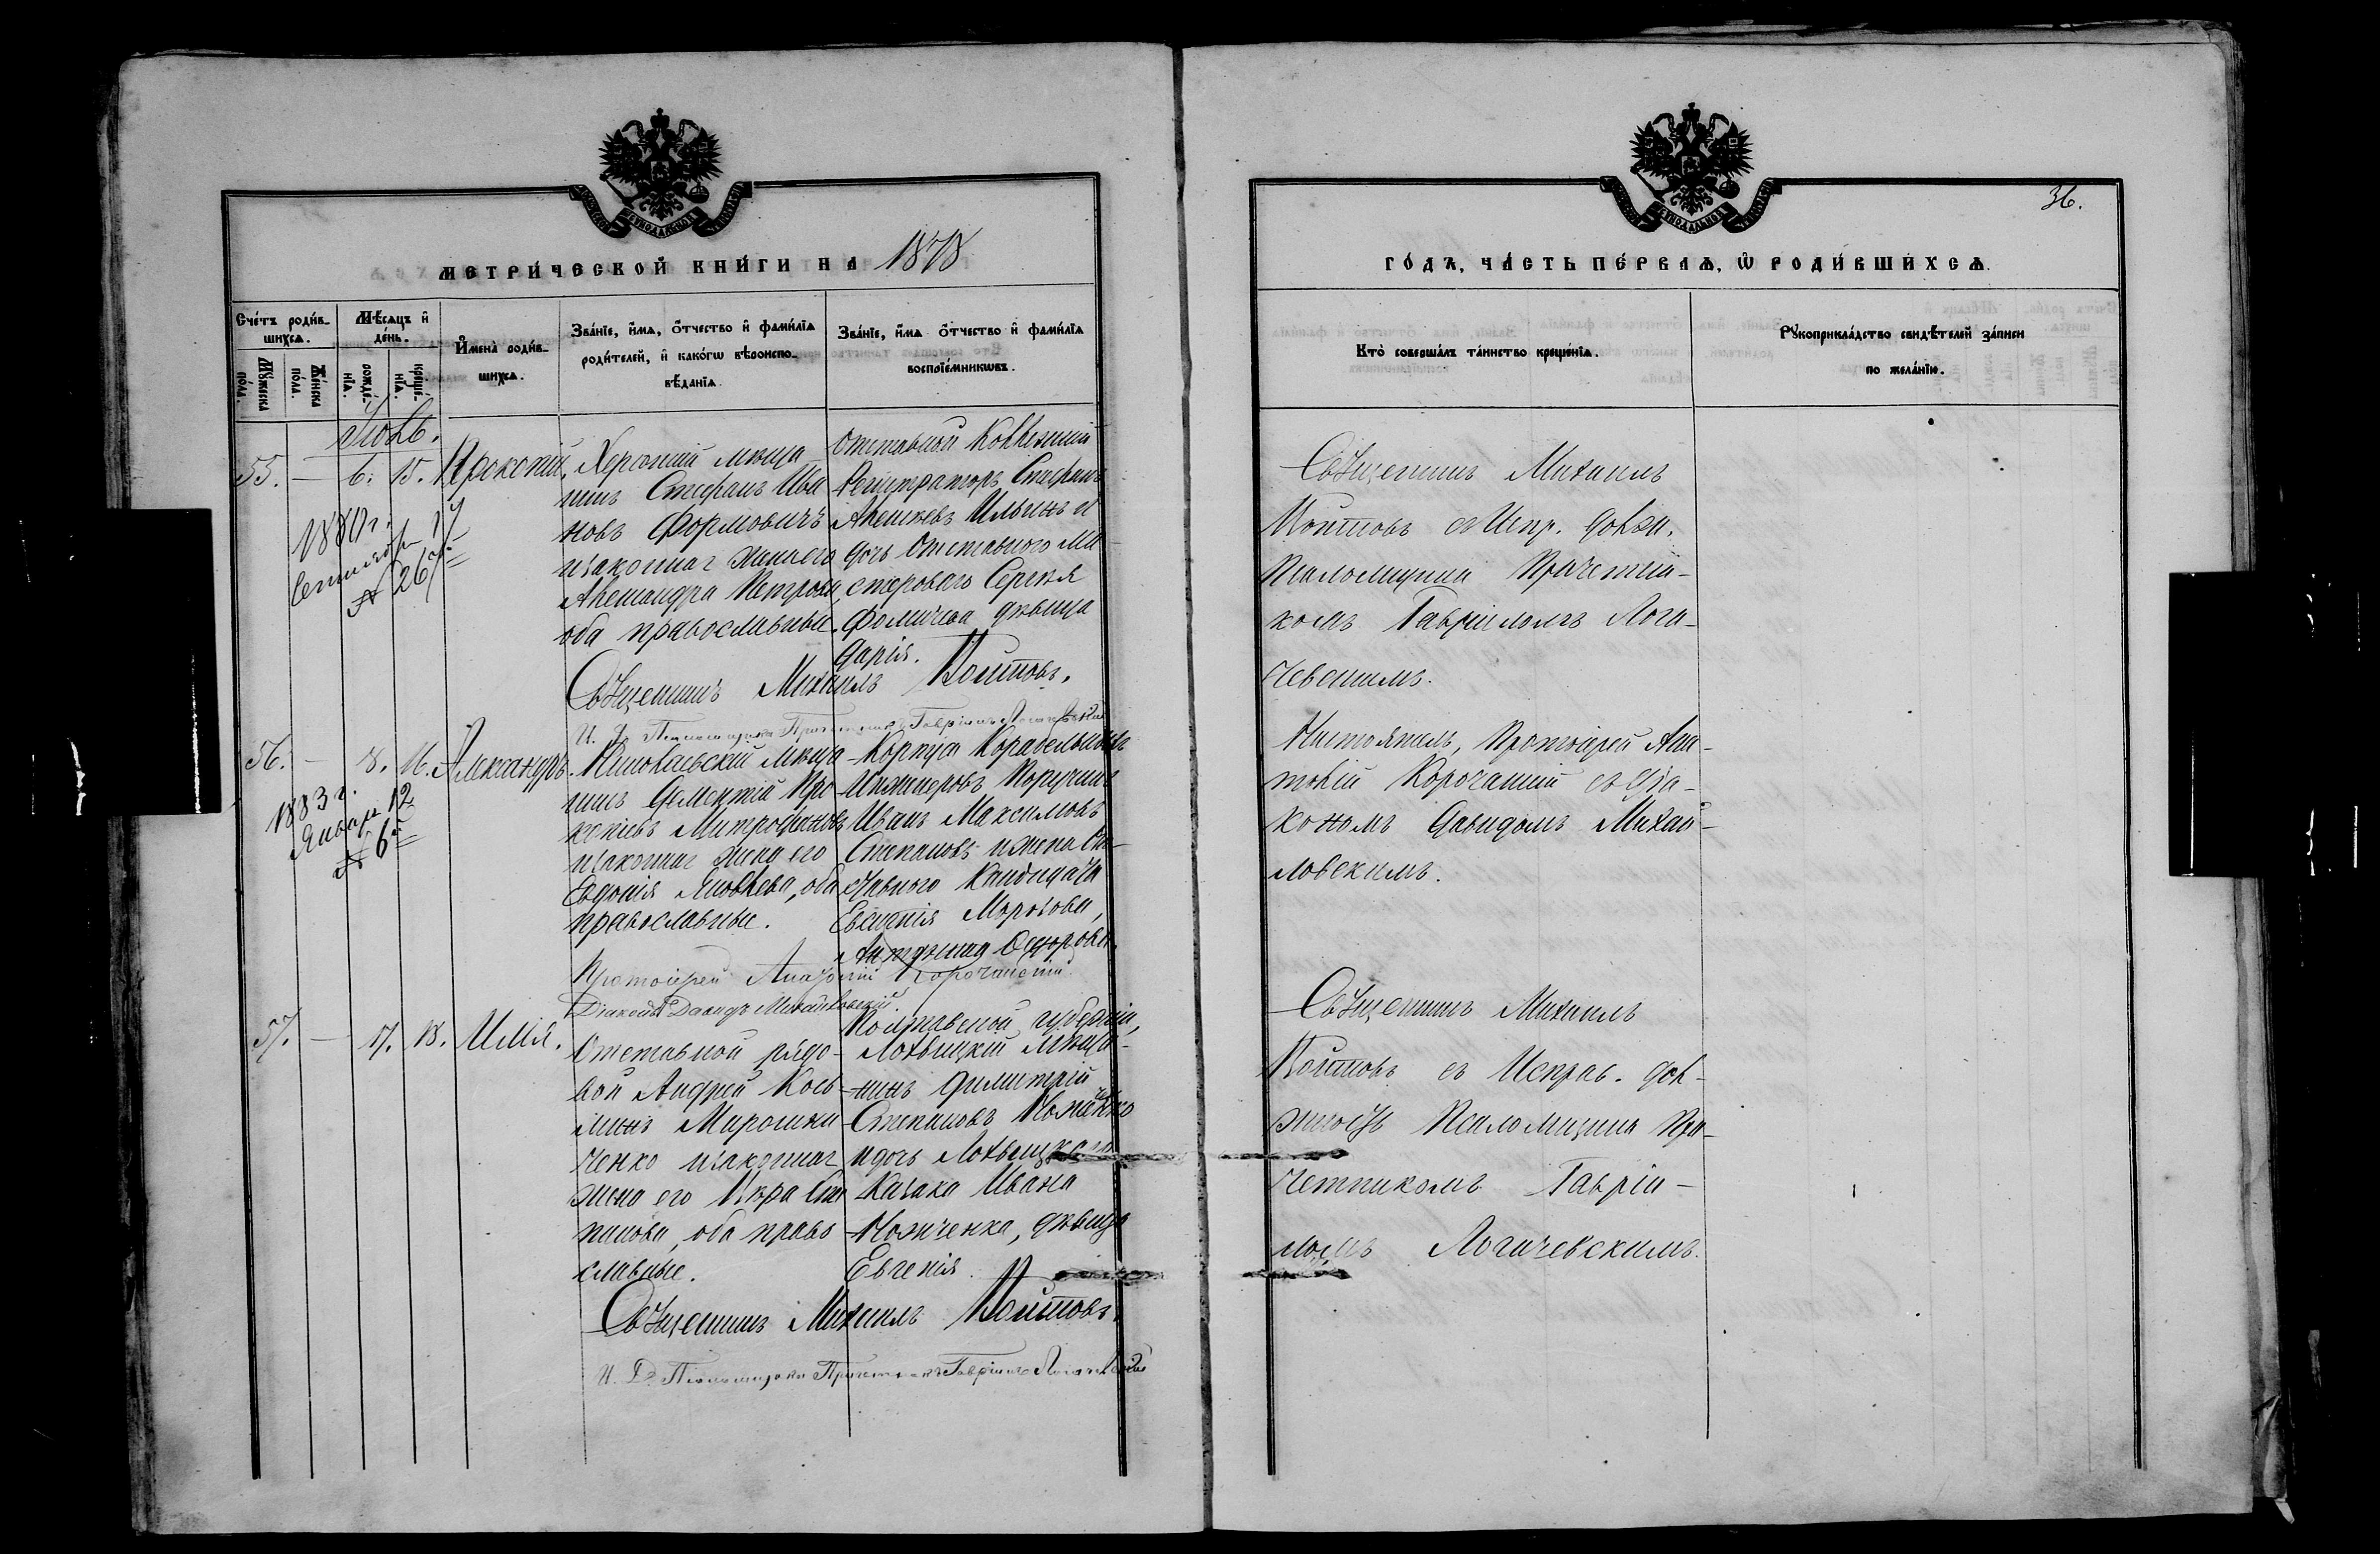 МЕТРИ́ЧЕСКОЙ КНИ́ГИ НА 1878
Сче́тъ роди́в-
шихсѧ.
Мѣ́сѧцъ и҆
де́нь.
И҆мена̀ роди́в-
шихсѧ.
Зва́нїе, и҆́мѧ, ѻ҆́тчество и҆ фами́лїѧ
роди́телей, и҆ како́гѡ вѣроиспо-
вѣ́данїѧ.
Зва́нїе, и҆́мѧ ѻ҆́тчество и҆ фами́лїѧ
воспрїе́мникѡвъ.
Мꙋ́жеска
по́ла.
Же́нска
по́ла.
рожде́-
нїѧ.
креще́-
нїѧ.
Іюль.
55. — 6. 15. Прокопій.
Херсонскій мѣща-
нинъ Стефанъ Ива
новъ
и законная жена его
Александра Петрова,
оба православные.
Отставной Коллежскій
Регистраторъ Стефанъ
Алексѣевъ Ильинъ и
дочь Отставного Ма
стероваго Сергѣя
Фомичева дѣвица
Дарія.
1880 г.
Сентября 17
№ 267
Священникъ Михаилъ Войтовъ.
И. Д. Псаломщика Причетникъ Гавріилъ Логачевскій
56. — 8. 16. Александръ.
Николаевскій мѣща-
нинъ Дементій Про-
копіевъ Митрофановъ
и законная жена его
Евдокія Яковлева, оба
православные.
Корпуса Корабельныхъ
Инженеровъ Поручикъ
Иванъ Максимовъ
Степановъ и жена
Кандидата
Евсигнія Морозова,
1883 г.
Января 12
№ 6
Протоіерей Анатолій Корочанскій.
Діаконъ Давидъ Михайловскій.
57. — 17. 18. Илія.
Отставной рядо-
вой Андрей Кось-
минъ Мирошни
ченко и законная
жена его Вѣра Сте
панова, оба право
славные.
Полтавской губерніи,
Лохвицкій мѣща-
нинъ Димитрій
Степановъ
и дочь Лохвицкаго
Казака Ивана
дѣвица
Евгенія.
Священникъ Михаилъ Войтовъ.
И. Д. Псаломщика Причетникъ Гавріилъ Логачевскій
36.
ГО́ДЪ, ЧА́СТЬ ПЕ́РВАѦ, Ѡ҆ РОДИ́ВШИХСѦ.
Кто̀ соверша́лъ та́инство креще́нїѧ.
Рꙋкоприкла́дство свидѣ́телей за́писи
по жела́нїю.
Священникъ Михаилъ
Войтовъ съ Испр. должн.
Псаломщика Причетни-
комъ Гавріиломъ Лога-
чевскимъ.
Настоятель, Протоіерей Ана-
толій Корочанскій съ Діа-
кономъ Давидомъ Михай-
ловскимъ.
Священникъ Михаилъ
Войтовъ съ Исправ. дол-
жность Псаломщика При-
четникомъ Гавріи-
ломъ Логачевскимъ.